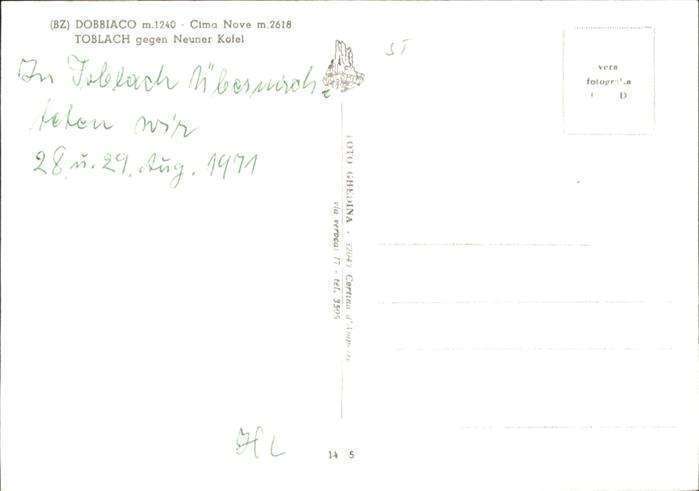 (BZ) DOBBIACO m.1240 - Cima Nove m.2618
TOBLACH gegen Neuner Kofel
In Toblach übernach
teten wir
28 u. 29. Aug. 1971
ST
vera
FOTO GHEDINA - 32043 Cortina d'Ampezzo
tel.
14 5